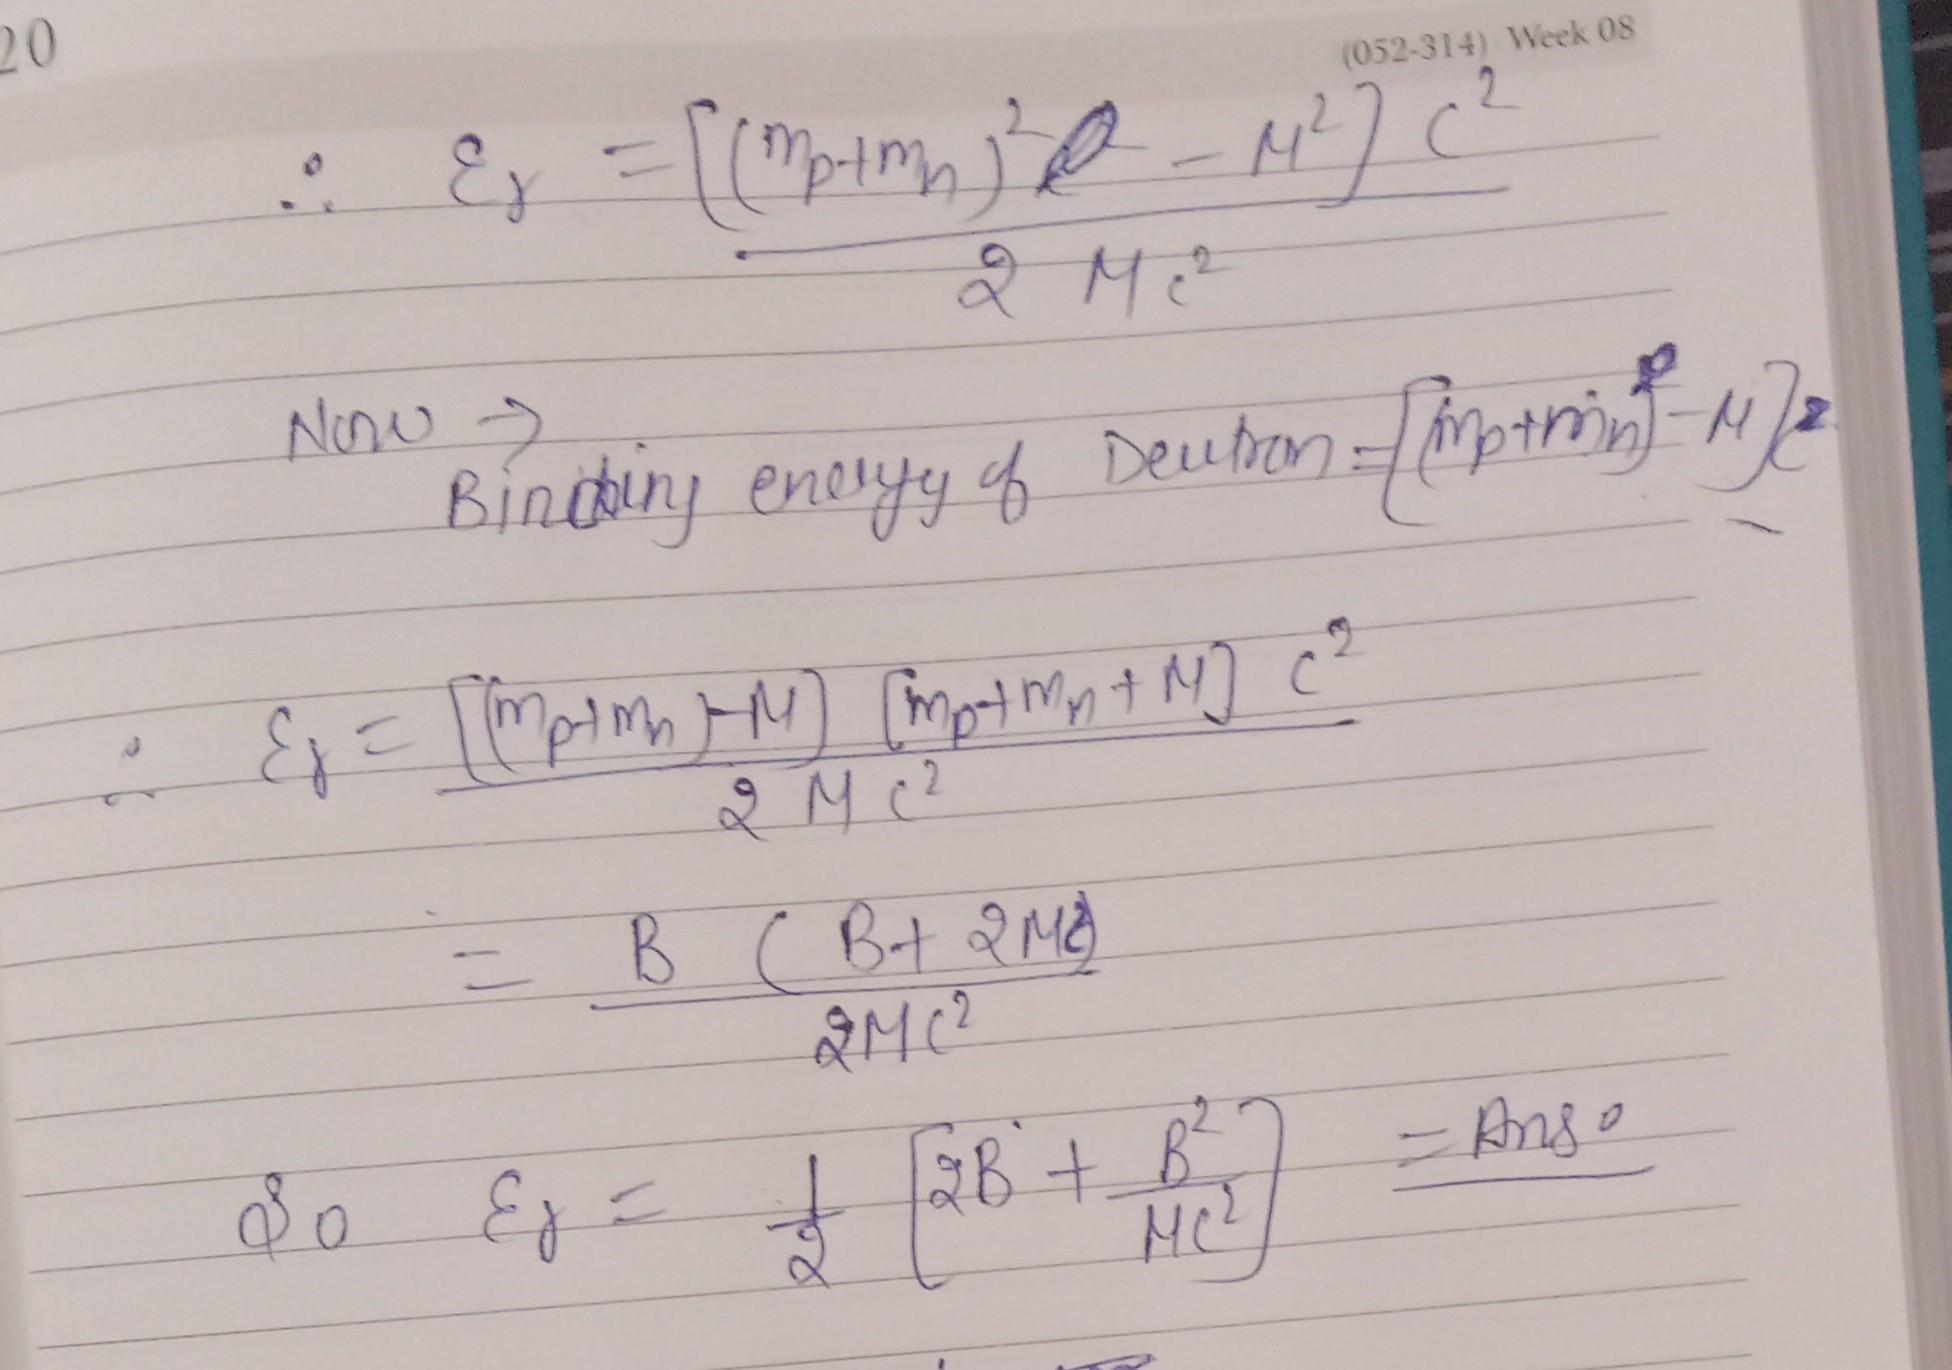 20
(052-314) Week 08
∴ Eγ = [(mp+mn)² - M²] c²
2 Mc²
Now →
Binding energy of Deutron = [(mp+mn) - M]c²
∴ Eγ = [(mp+mn)-M] [mp+mn+M] c²
2 M c²
= B ( B+ 2Mc²)
2Mc²
So Eγ = 1/2 [2B + B²/Mc²] = Ans.